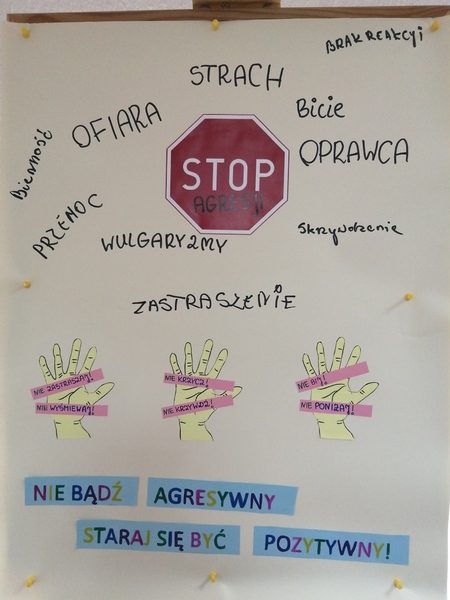 BRAK REAKCYI
STRACH
OFIARA
Bicie
Bierność
STOP
AGRESJI
OPRAWCA
PRZEMOC
WULGARYZMY
Skrzywdzenie
ZASTRASZENIE
NIE ZASTRASZAJ!
NIE WYŚMIEWAJ!
NIE KRZYCZ!
NIE KRZYWDŹ!
NIE BIJ!
NIE PONIŻAJ!
NIE BĄDŹ AGRESYWNY
STARAJ SIĘ BYĆ POZYTYWNY!